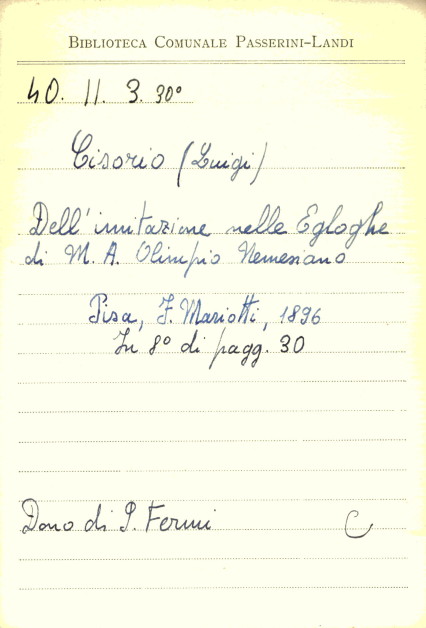 BIBLIOTECA COMUNALE PASSERINI-LANDI
40. 11. 3. 30°
Cisorio (Luigi)
Dell'imitazione nelle Egloghe
di M. A. Olimpio Nemesiano
Pisa, F. Mariotti, 1896
In 8° di pagg. 30
Dono di S. Fermi
C